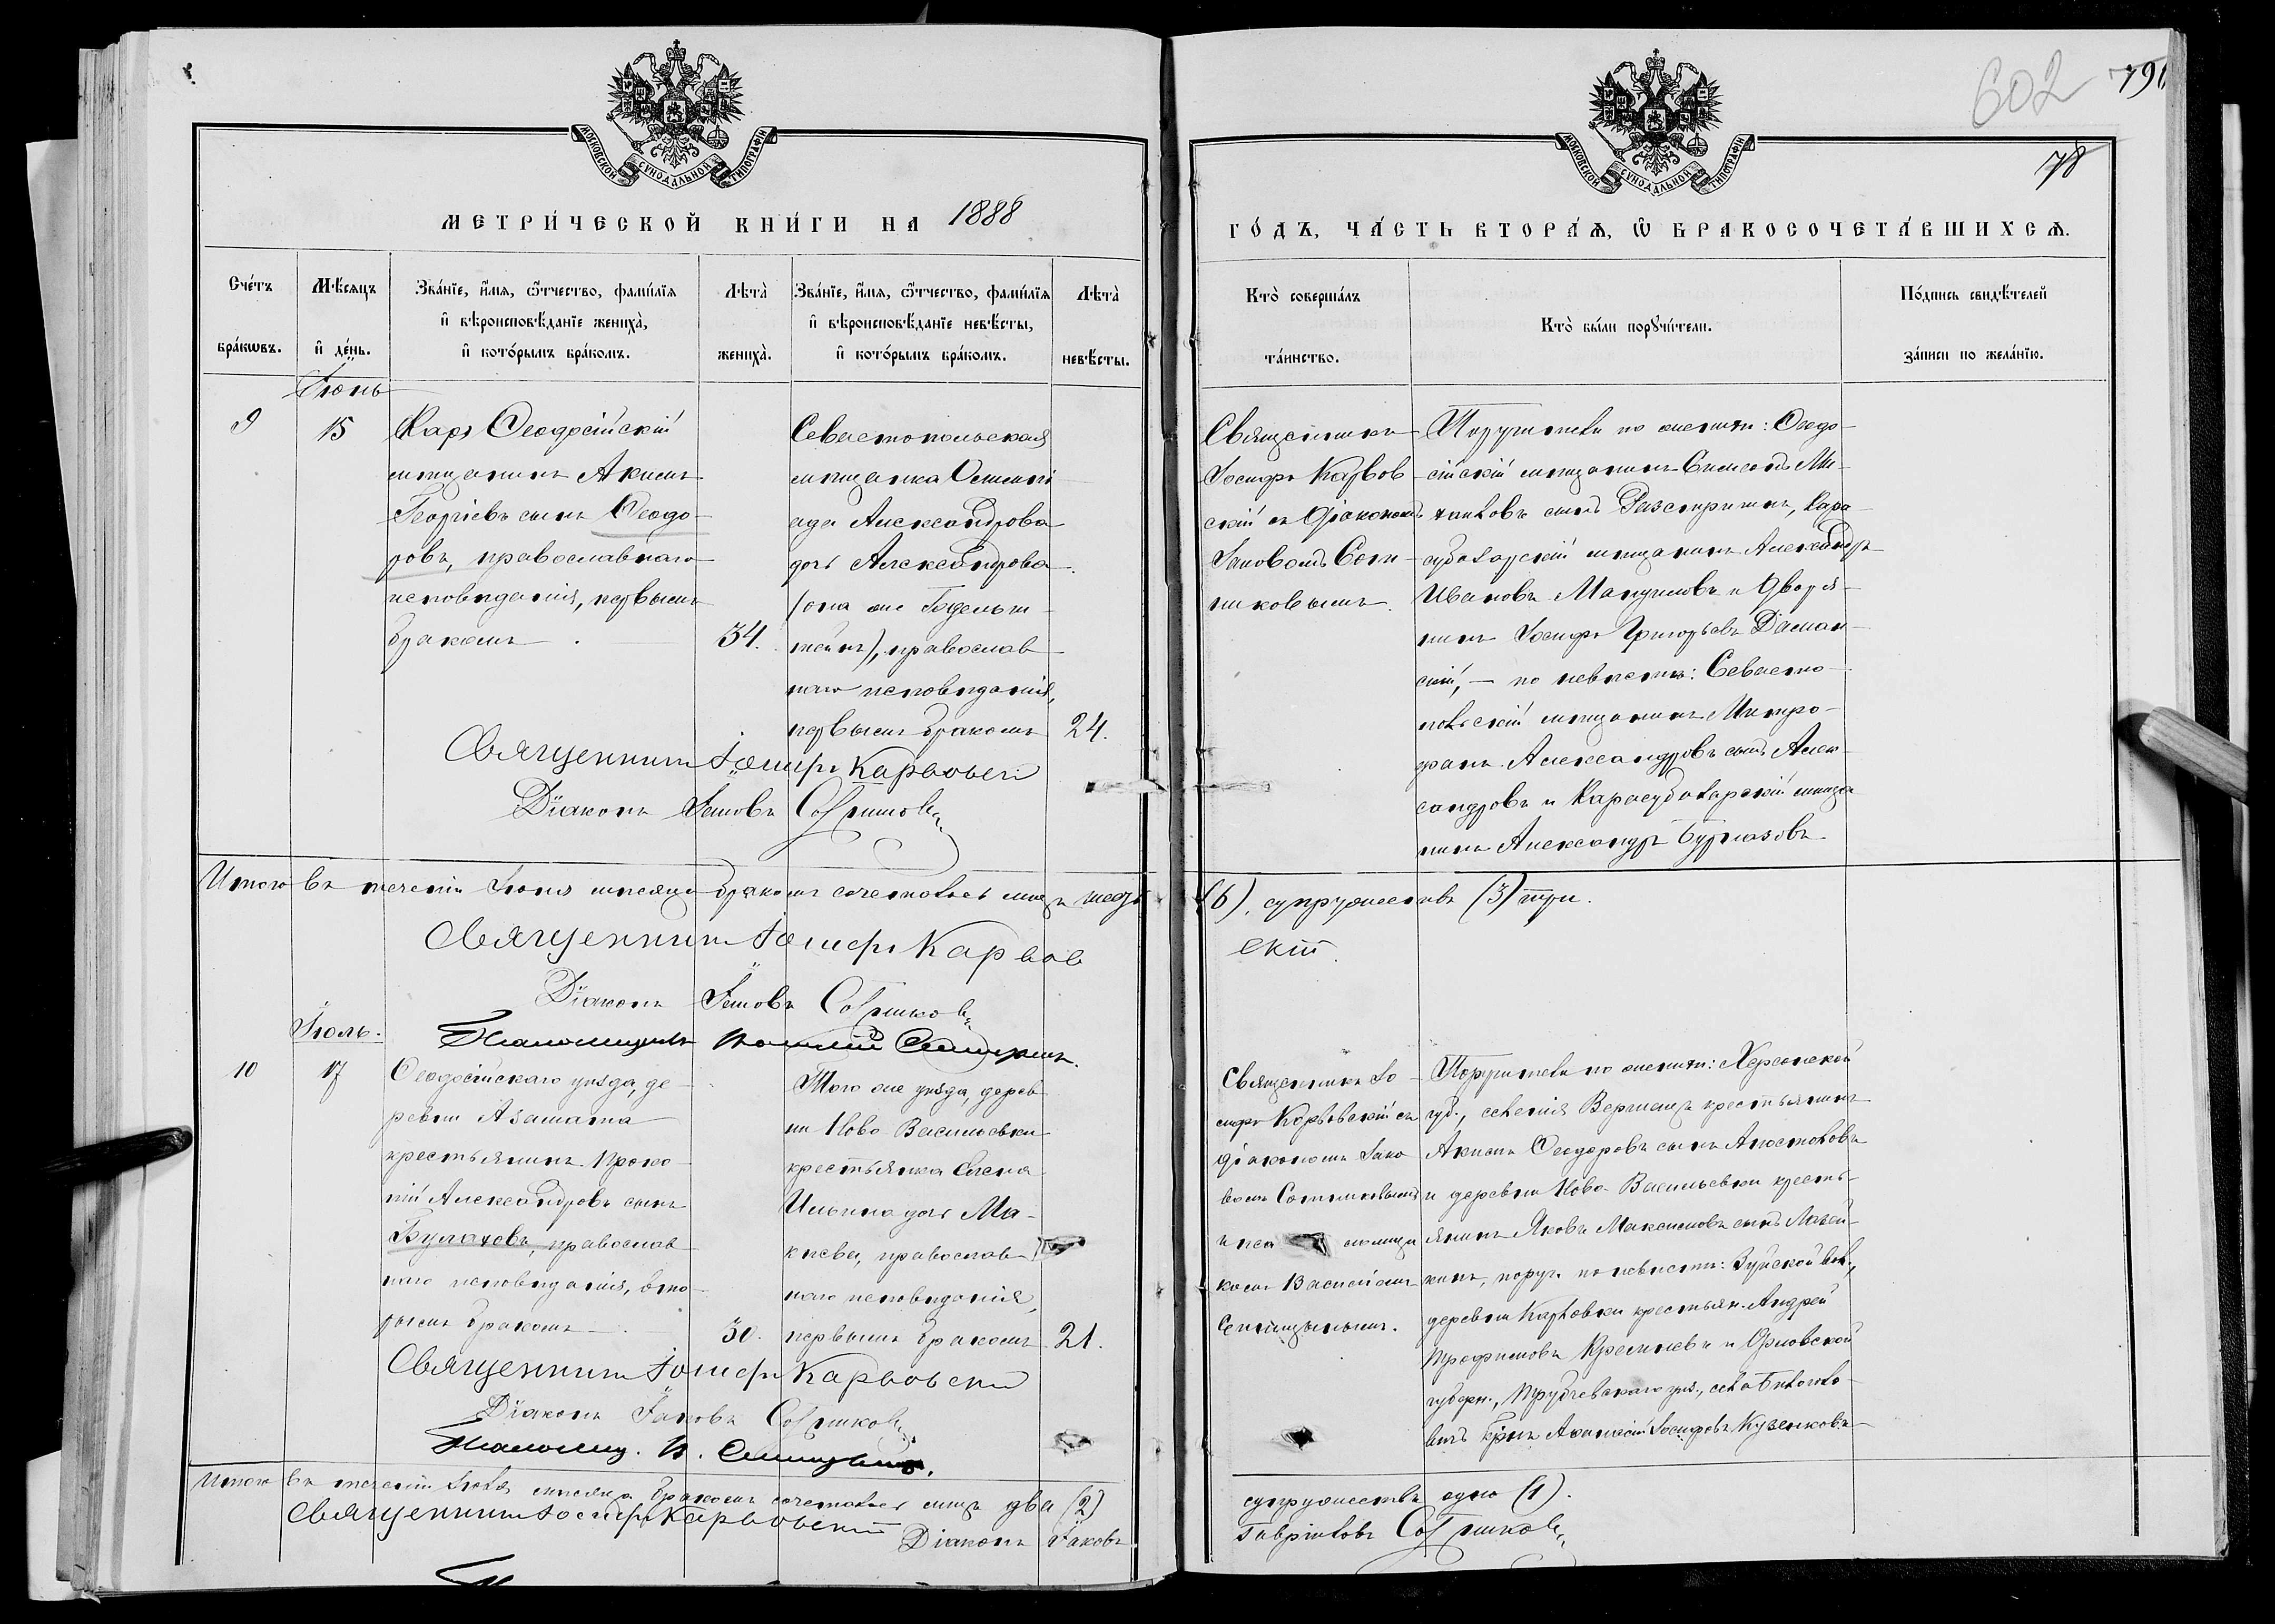 602
791
78
МОСКОВСКОЙ СѴНОДАЛЬНОЙ ТИПОГРАФІИ
МОСКОВСКОЙ СѴНОДАЛЬНОЙ ТИПОГРАФІИ
МЕТРИ́ЧЕСКОЙ КНИ́ГИ НА 1888
ГО́ДЪ, ЧА́СТЬ ВТОРА́Ѧ, Ѽ БРАКОСОЧЕТА́ВШИХСѦ.
Сче́тъ бра́кѡвъ.
Мѣ́сяцъ и҆ де́нь.
Зва́нїе, и҆́мя, ѻ҆́тчество, фами́лїя
и҆ вѣроисповѣ́данїе жениха̀,
и҆ кото́рымъ бра́комъ.
Лѣта̀ жениха̀.
Зва́нїе, и҆́мя, ѻ҆́тчество, фами́лїя
и҆ вѣроисповѣ́данїе невѣ́сты,
и҆ кото́рымъ бра́комъ.
Лѣта̀ невѣ́сты.
Кто̀ соверша́лъ та́инство.
Кто̀ бы́ли порꙋчи́тели.
По́дпись свидѣ́телей за́писи по жела́нїю.
Іюнь
9
15
Ѳеодосійскій
мѣщанинъ Акимъ
Георгіевъ сынъ Ѳеодо-
ровъ, православнаго
исповѣданія, первымъ
бракомъ
34.
Севастопольская
мѣщанка Олимпі
ада Александрова
дочь Александрова
(она же
), православ
наго исповѣданія,
первымъ бракомъ
24.
Священникъ
Іосифъ Карвов
скій съ Діакономъ
Іаковомъ Сот-
никовымъ.
Поручители по женихѣ: Ѳеодо-
сійскій мѣщанинъ Ми-
хайловъ сынъ Кара-
субазарскій мѣщанинъ Александръ
Ивановъ и Дворя-
нинъ Іосифъ Григорьевъ Даман-
скій, — по невѣстѣ: Севасто-
польскій мѣщанинъ Митро-
фанъ Александровъ сынъ Алек-
сандровъ и Карасубазарскій мѣща
нинъ Александръ
Священникъ Іосифъ Карвовскій
Діаконъ Іаковъ Сотниковъ
Итого въ теченіи Іюня мѣсяца бракомъ сочеталось лицъ шесть
(6), супружествъ (3) три.
Священникъ Іосифъ Карвов
скій
Діаконъ Іаковъ Сотниковъ
Псаломщикъ Василій
Іюль.
10
17
Ѳеодосійскаго уѣзда, де-
ревни Азамата
крестьянинъ Проко-
пій Александровъ сынъ
Булатовъ, православ
наго исповѣданія, вто-
рымъ бракомъ
30.
Того же уѣзда, дерев
ни Ново Васильевки
крестьянка Елена
Ильина дочь Ма-
кѣева, православ
наго исповѣданія,
первымъ бракомъ
21.
Священникъ Іо-
сифъ Карвовскій съ
діакономъ Іако
вомъ Сотниковымъ
и пса ломщи
комъ Василіемъ
Поручители по женихѣ: Херсонской
губ., селенія крестьянинъ
Акимъ Ѳеодоровъ сынъ Апостоловъ
и деревни Ново-Васильевки кресть-
янинъ Яковъ Максимовъ сынъ
поруч. по невѣстѣ: Зуйской вол.,
деревни крестьян. Андрей
Трофимовъ и Орловской
губерн., Трубчевскаго уѣз., села
Іосифовъ Кузенковъ
Священникъ Іосифъ Карвовскій
Діаконъ Іаковъ Сотниковъ
Псаломщ. В.
Итого въ теченіи Іюля мѣсяца бракомъ сочеталось лицъ два (2)
супружествъ одно (1).
Священникъ Іосифъ Карвовскій
Діаконъ Іаковъ
Гавріиловъ Сотниковъ